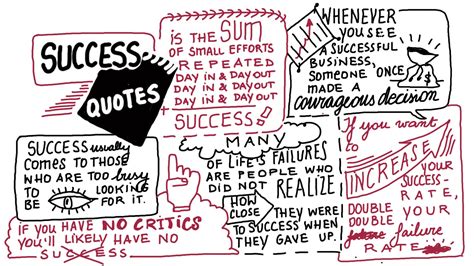 SUCCESS-
QUOTES
IS THE SUM
OF SMALL EFFORTS
REPEATED
DAY IN & DAY OUT
DAY IN & DAY OUT
DAY IN & DAY OUT
SUCCESS!
WHENEVER
YOU SEE
A SUCCESSFUL
BUSINESS,
SOMEONE ONCE
MADE A
courageous decision
SUCCESS usually
COMES TO THOSE
WHO ARE TOO busy
TO BE LOOKING
FOR IT.
MANY
OF LIFE'S FAILURES
ARE PEOPLE WHO
DID NOT REALIZE
HOW CLOSE THEY WERE
TO SUCCESS WHEN
THEY GAVE UP.
If you want
to
INCREASE
YOUR
SUCCESS-
RATE,
DOUBLE YOUR
DOUBLE
failure failure
RATE
IF YOU HAVE NO CRITICS
YOU'LL LIKELY HAVE NO
SUCCESS